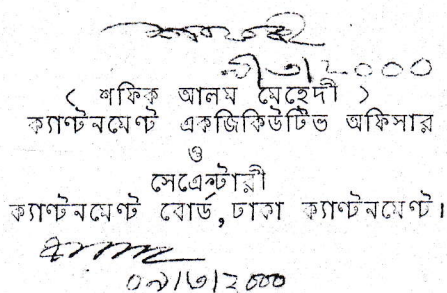 ৭/৩/২০০০
( শফিক আলম মেহেদী )
ক্যাণ্টনমেণ্ট একজিকিউটিভ অফিসার
ও
সেক্রেটারী
ক্যাণ্টনমেণ্ট বোর্ড,ঢাকা ক্যাণ্টনমেণ্ট।
০৭/৩/২০০০